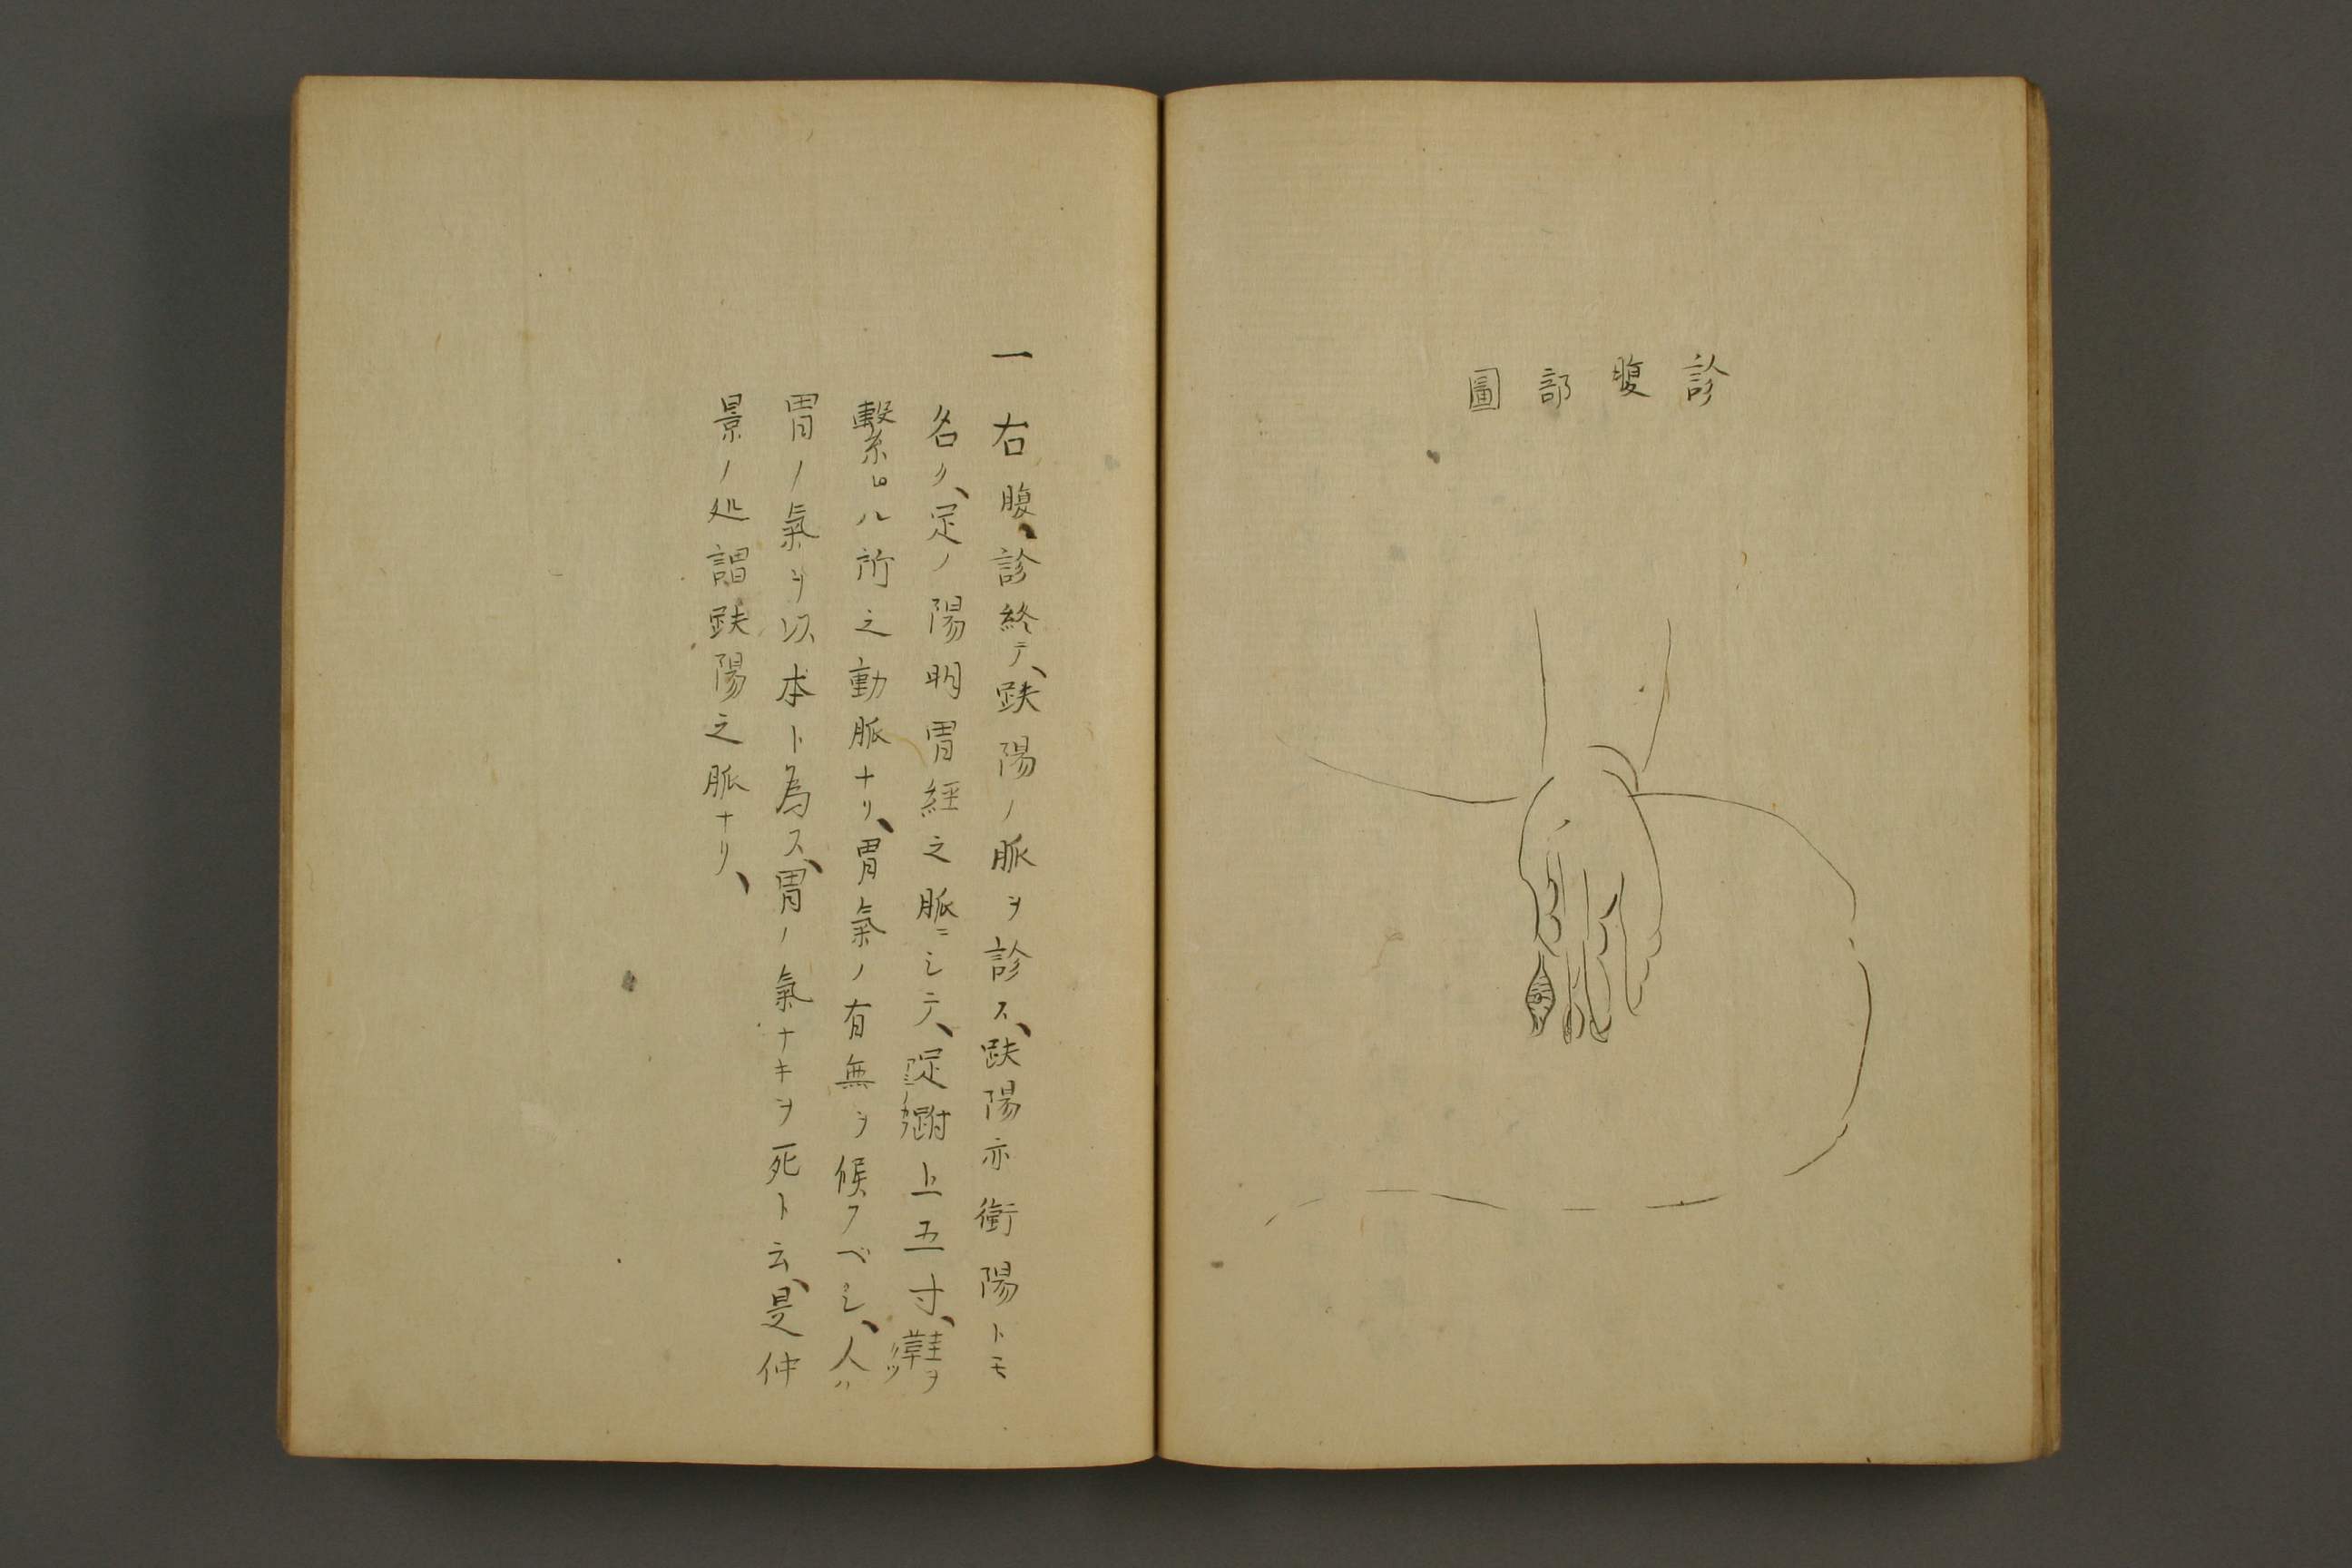 診腹部圖
一右腹、診終テ、趺陽ノ脈ヲ診ス、趺陽亦衝陽トモ
名ク、足ノ陽明胃經之脈ニシテ、足跗上五寸、鞋ヲ
繫ヒル所之動脈ナリ、胃氣ノ有無ヲ候フベシ、人ハ
胃ノ氣ヲ以本ト為ス、胃ノ氣ナキヲ死ト云、是仲
景ノ処謂趺陽之脈ナリ、